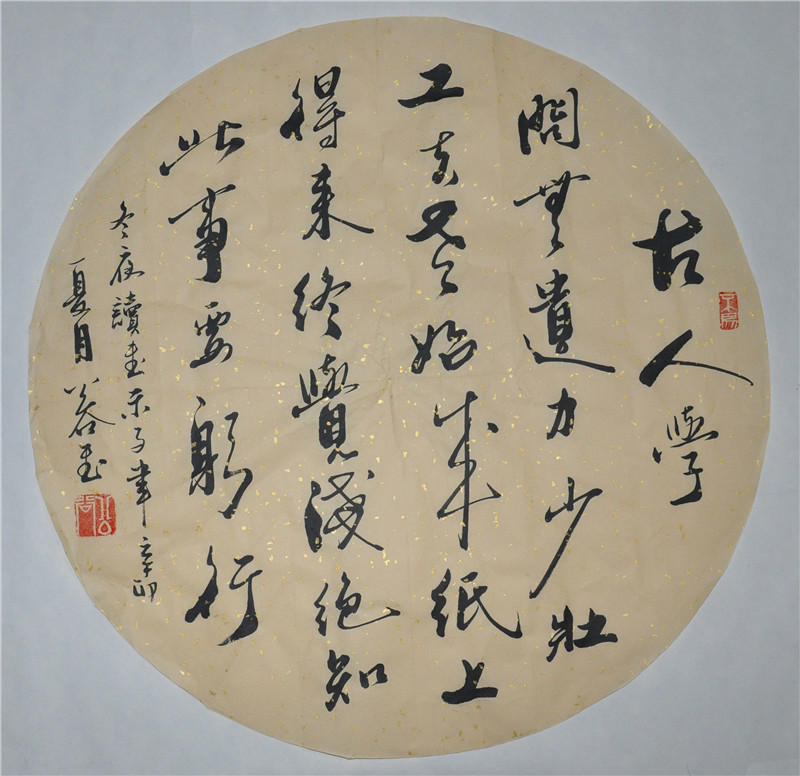 古人學
問無遺力少壯
工夫老始成紙上
得来終覺淺絶知
此事要躬行
冬夜讀書示子聿 辛卯
夏月書